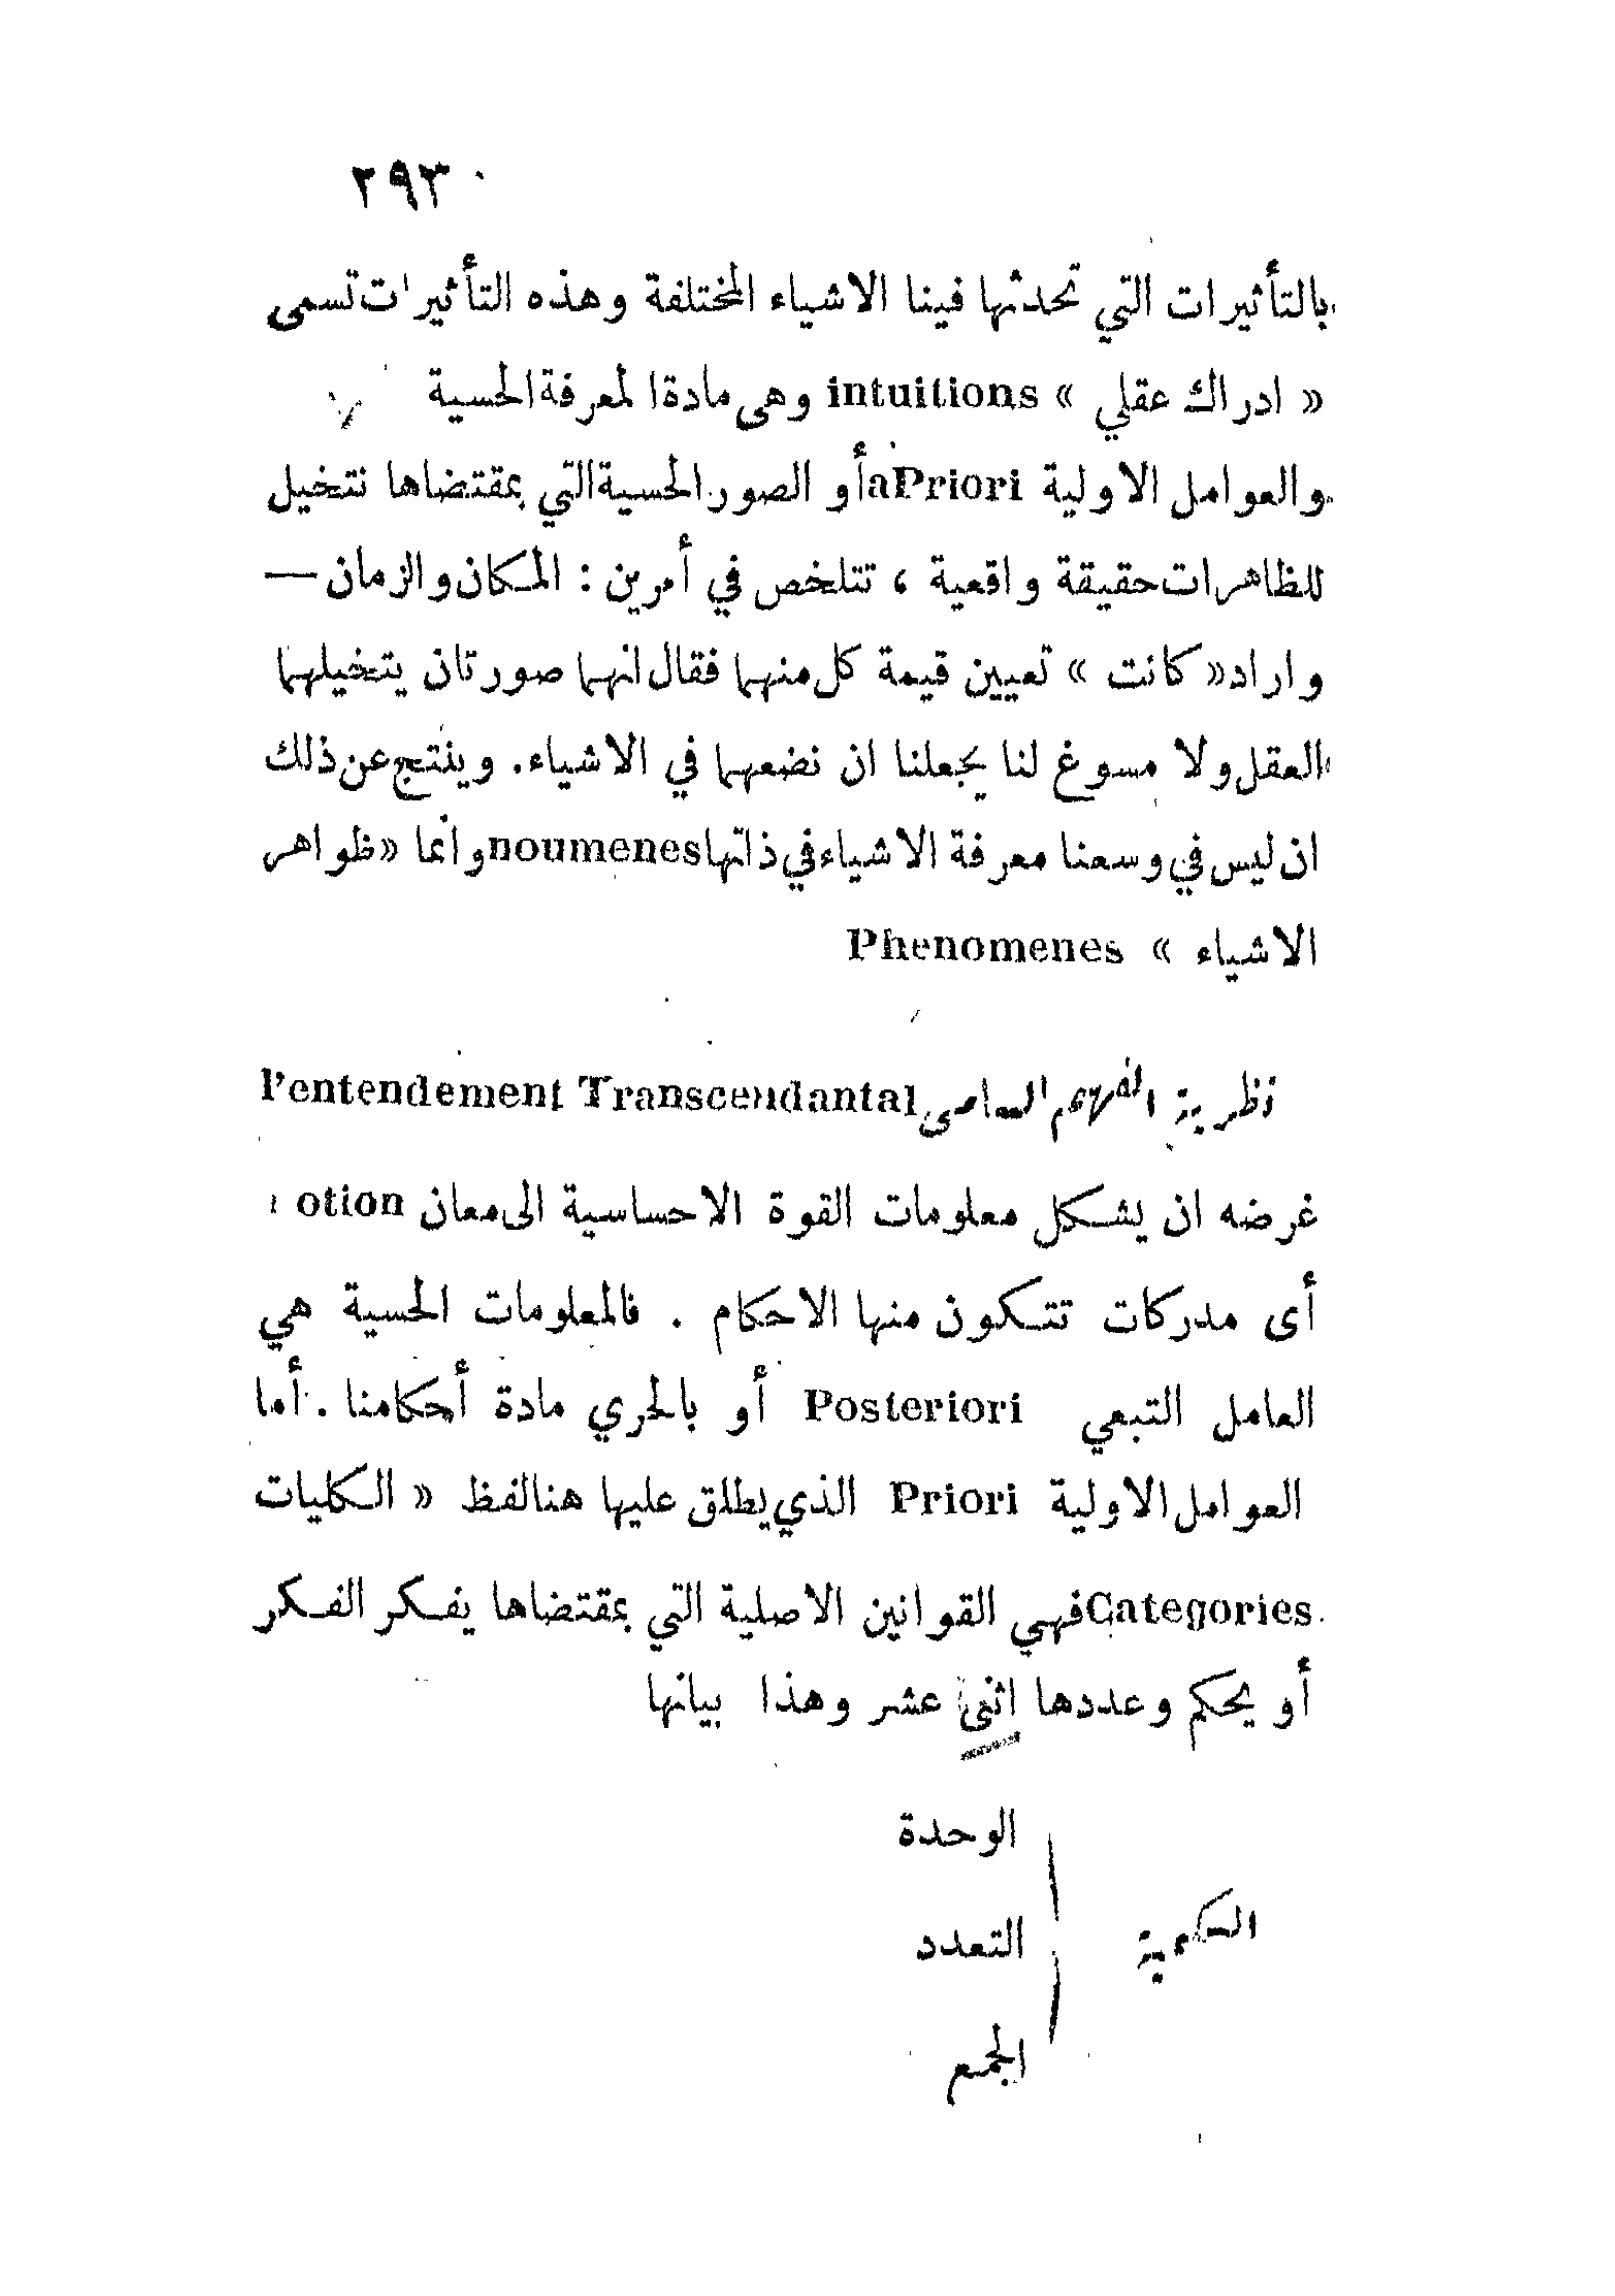 ٢٩٣
بالتأثيرات التي تحدثها فينا الاشياء المختلفة وهذه التأثيرات تسمى
« ادراك عقلي » intuitions وهى مادة المعرفة الحسية
والعوامل الاولية aPriori أو الصور الحسية التي بمقتضاها نتخيل
للظاهرات حقيقة واقعية ، تتلخص في أمرين : المكان والزمان —
واراد « كانت » تعيين قيمة كل منهما فقال انهما صورتان يتخيلهما
العقل ولا مسوغ لنا يجعلنا ان نضعهما في الاشياء. وينتج عن ذلك
ان ليس في وسعنا معرفة الاشياء في ذاتها noumenes وانما « ظواهر
الاشياء » Phenomenes
نظرية الفهم السامى l'entendement Transcendantal
غرضه ان يشكل معلومات القوة الاحساسية الى معان otion
أى مدركات تتكون منها الاحكام . فالمعلومات الحسية هي
العامل التبعي Posteriori أو بالحري مادة أحكامنا . أما
العوامل الاولية Priori الذي يطلق عليها هنا لفظ « الكليات
Categories فهي القوانين الاصلية التي بمقتضاها يفكر الفكر
أو يحكم وعددها اثنى عشر وهذا بيانها
الوحدة
الكمية
التعدد
الجمع